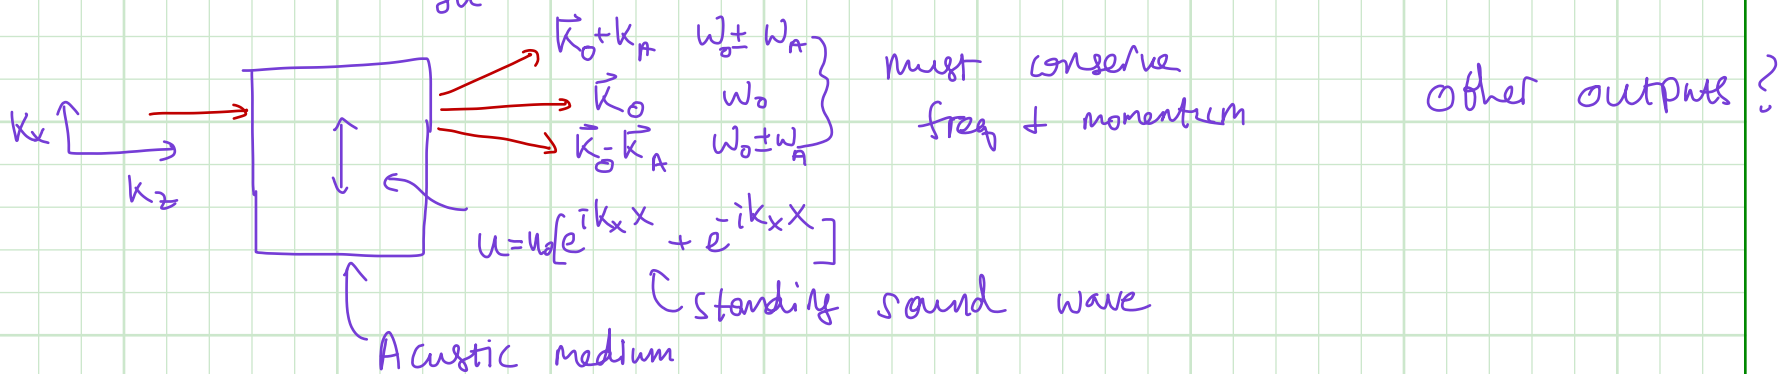 K⃗₀+k_A   ω₀ ± ω_A
K⃗₀   ω₀
K⃗₀-K⃗_A   ω₀±ω_A
must conserve
freq + momentum
other outputs ?
Kₓ
K_z
u=u₀[e^{ikₓx} + e^{-ikₓx}]
standing sound wave
Acustic medium